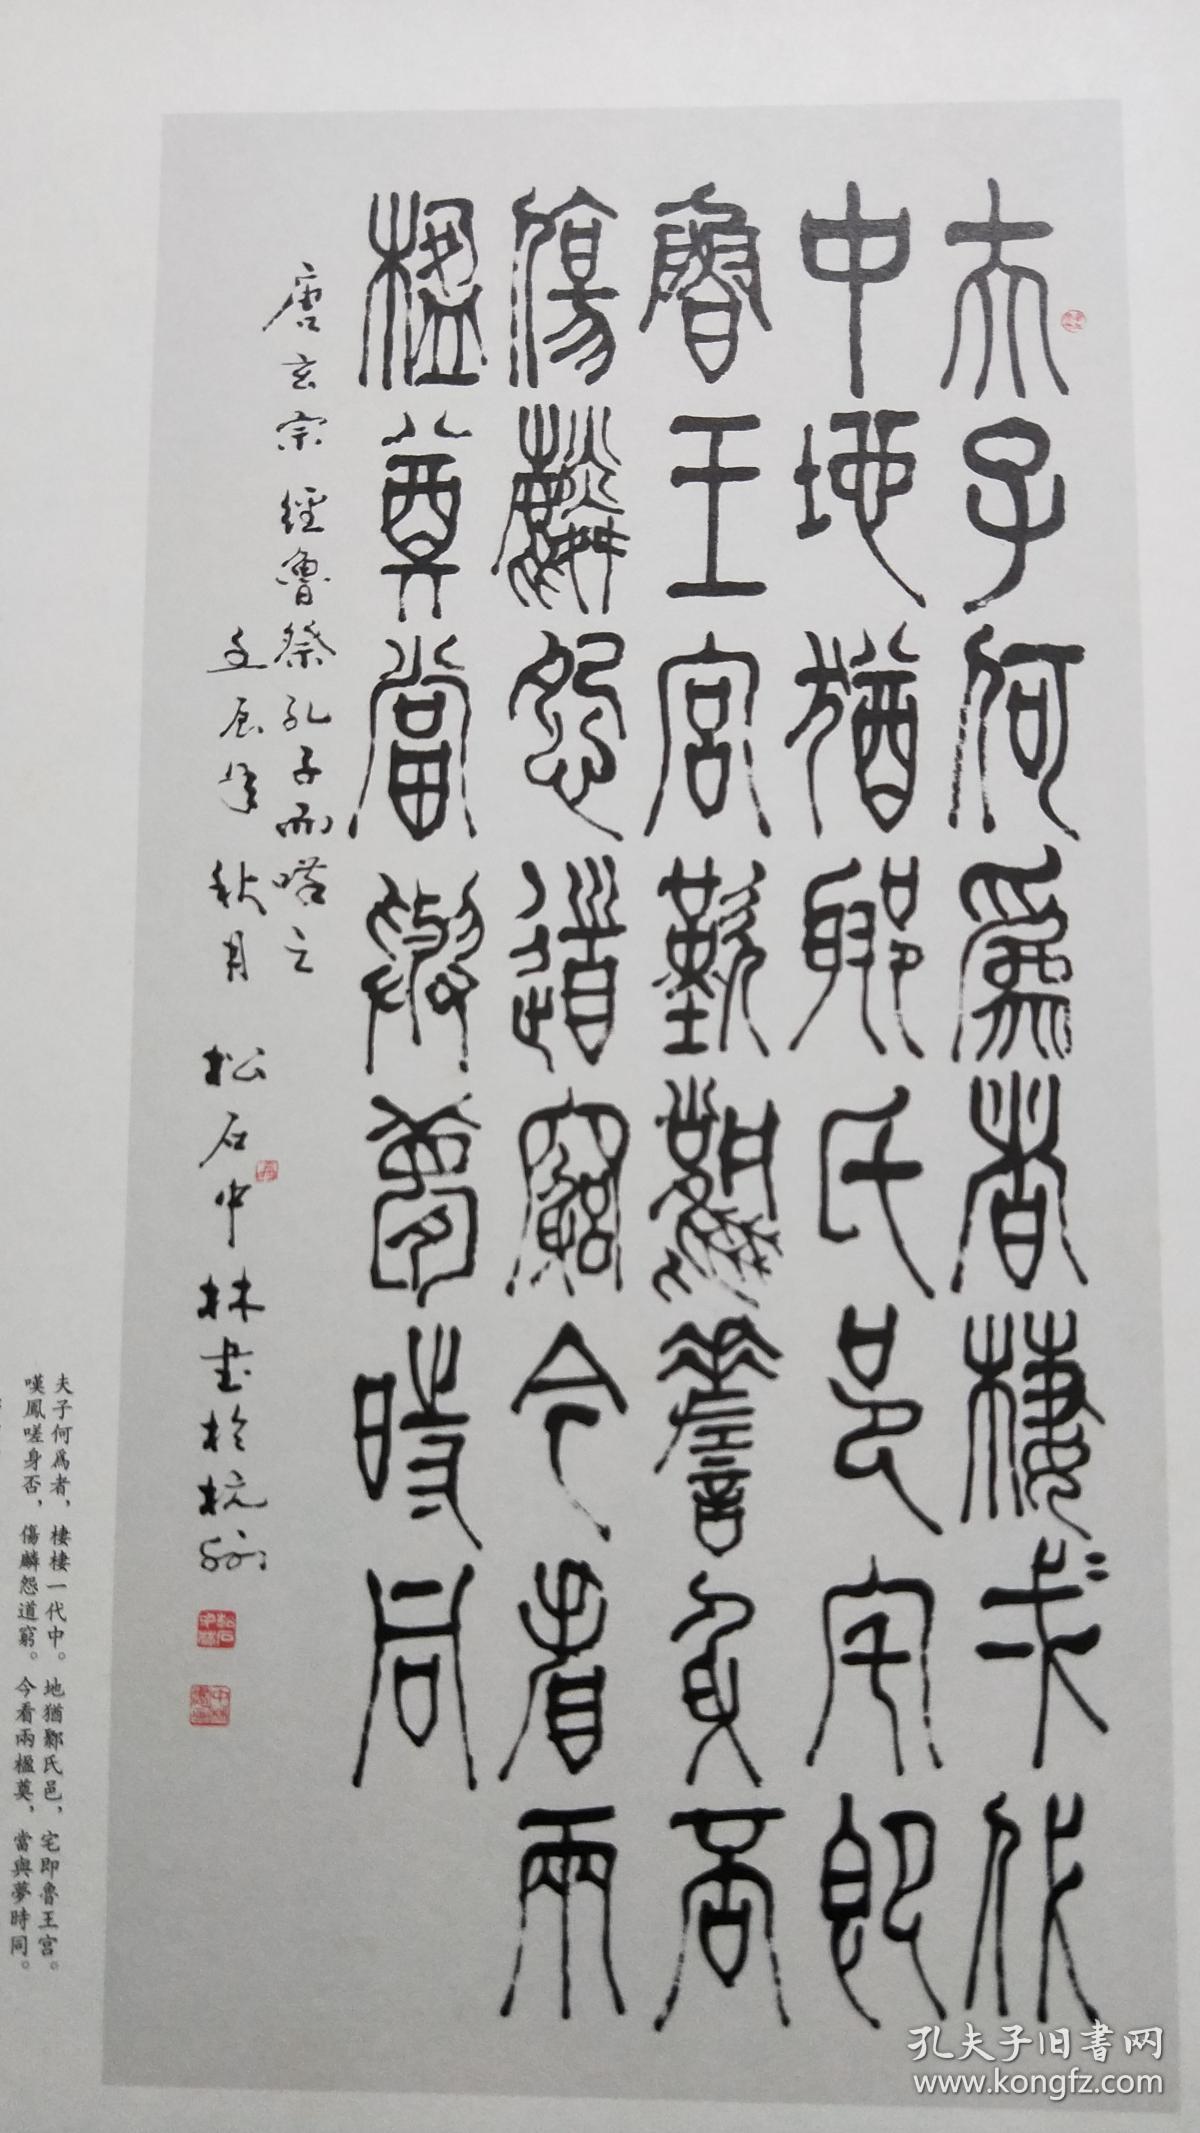 夫子何為者棲=弌代
中地猶鄹氏邑宅即
魯王宮歎鳳嗟身否
傷麟怨道窮今看兩
楹奠當與夢時同
唐玄宗經魯祭孔子而嘆之
壬辰年秋月 松石中林書於杭州
夫子何爲者，棲棲一代中。地猶鄹氏邑，宅即魯王宮。
嘆鳳嗟身否，傷麟怨道窮。今看兩楹奠，當與夢時同。
孔夫子旧书网
www.kongfz.com